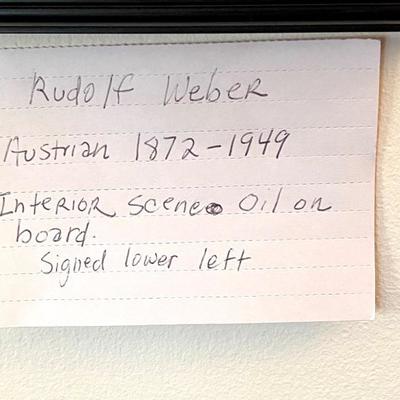 Rudolf Weber
Austrian 1872-1949
Interior scene Oil on
board.
Signed lower left